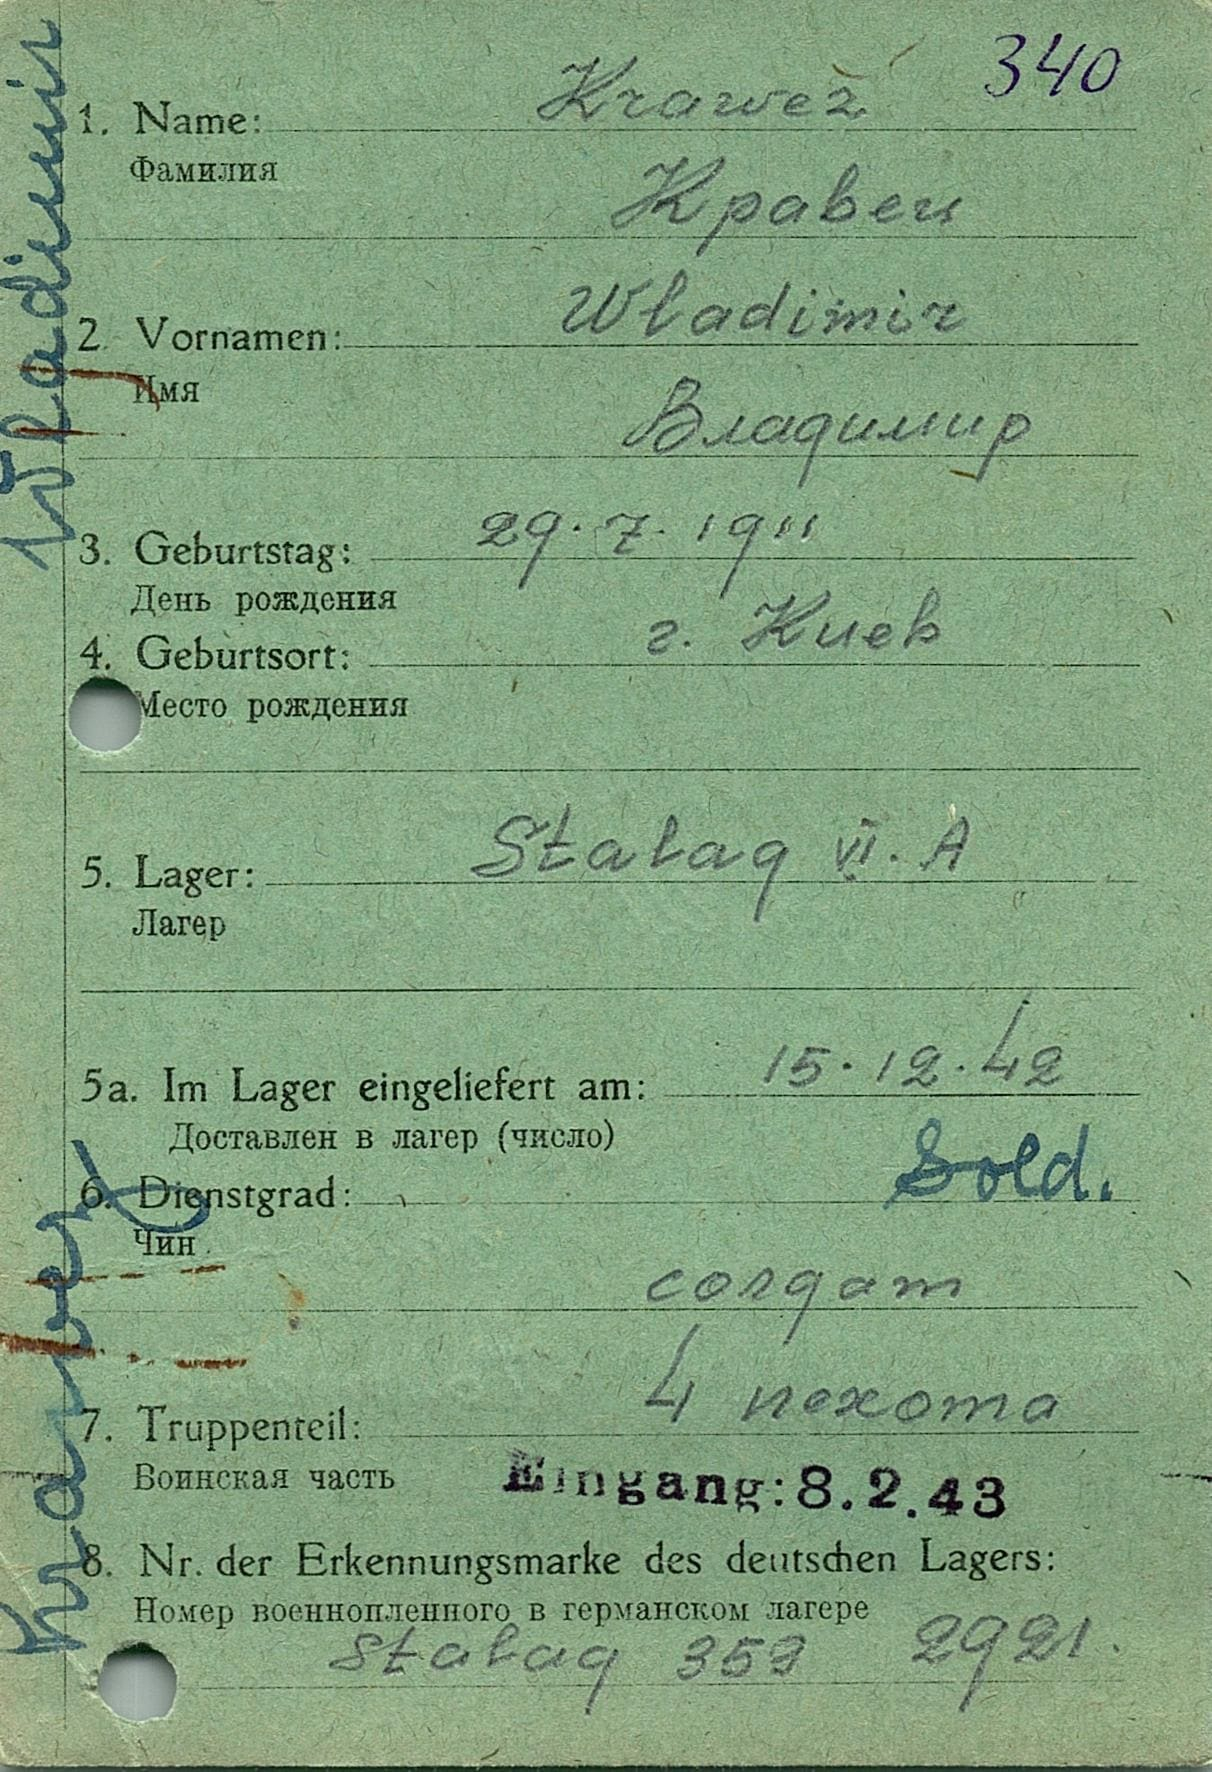 340
1. Name: Krawez
Фамилия
Кравец
2. Vornamen: Wladimir
Имя
Владимир
3. Geburtstag: 29. 7. 1911
День рождения
4. Geburtsort: г. Киев
Место рождения
5. Lager: Stalag VI. A
Лагер
5a. Im Lager eingeliefert am: 15. 12. 42
Доставлен в лагер (число)
6. Dienstgrad: Sold.
Чин
солдат
4 пехота
7. Truppenteil:
Воинская часть
Eingang: 8. 2. 43
8. Nr. der Erkennungsmarke des deutschen Lagers:
Номер военнопленного в германском лагере
Stalag 359 2921.
Krawez Wladimir